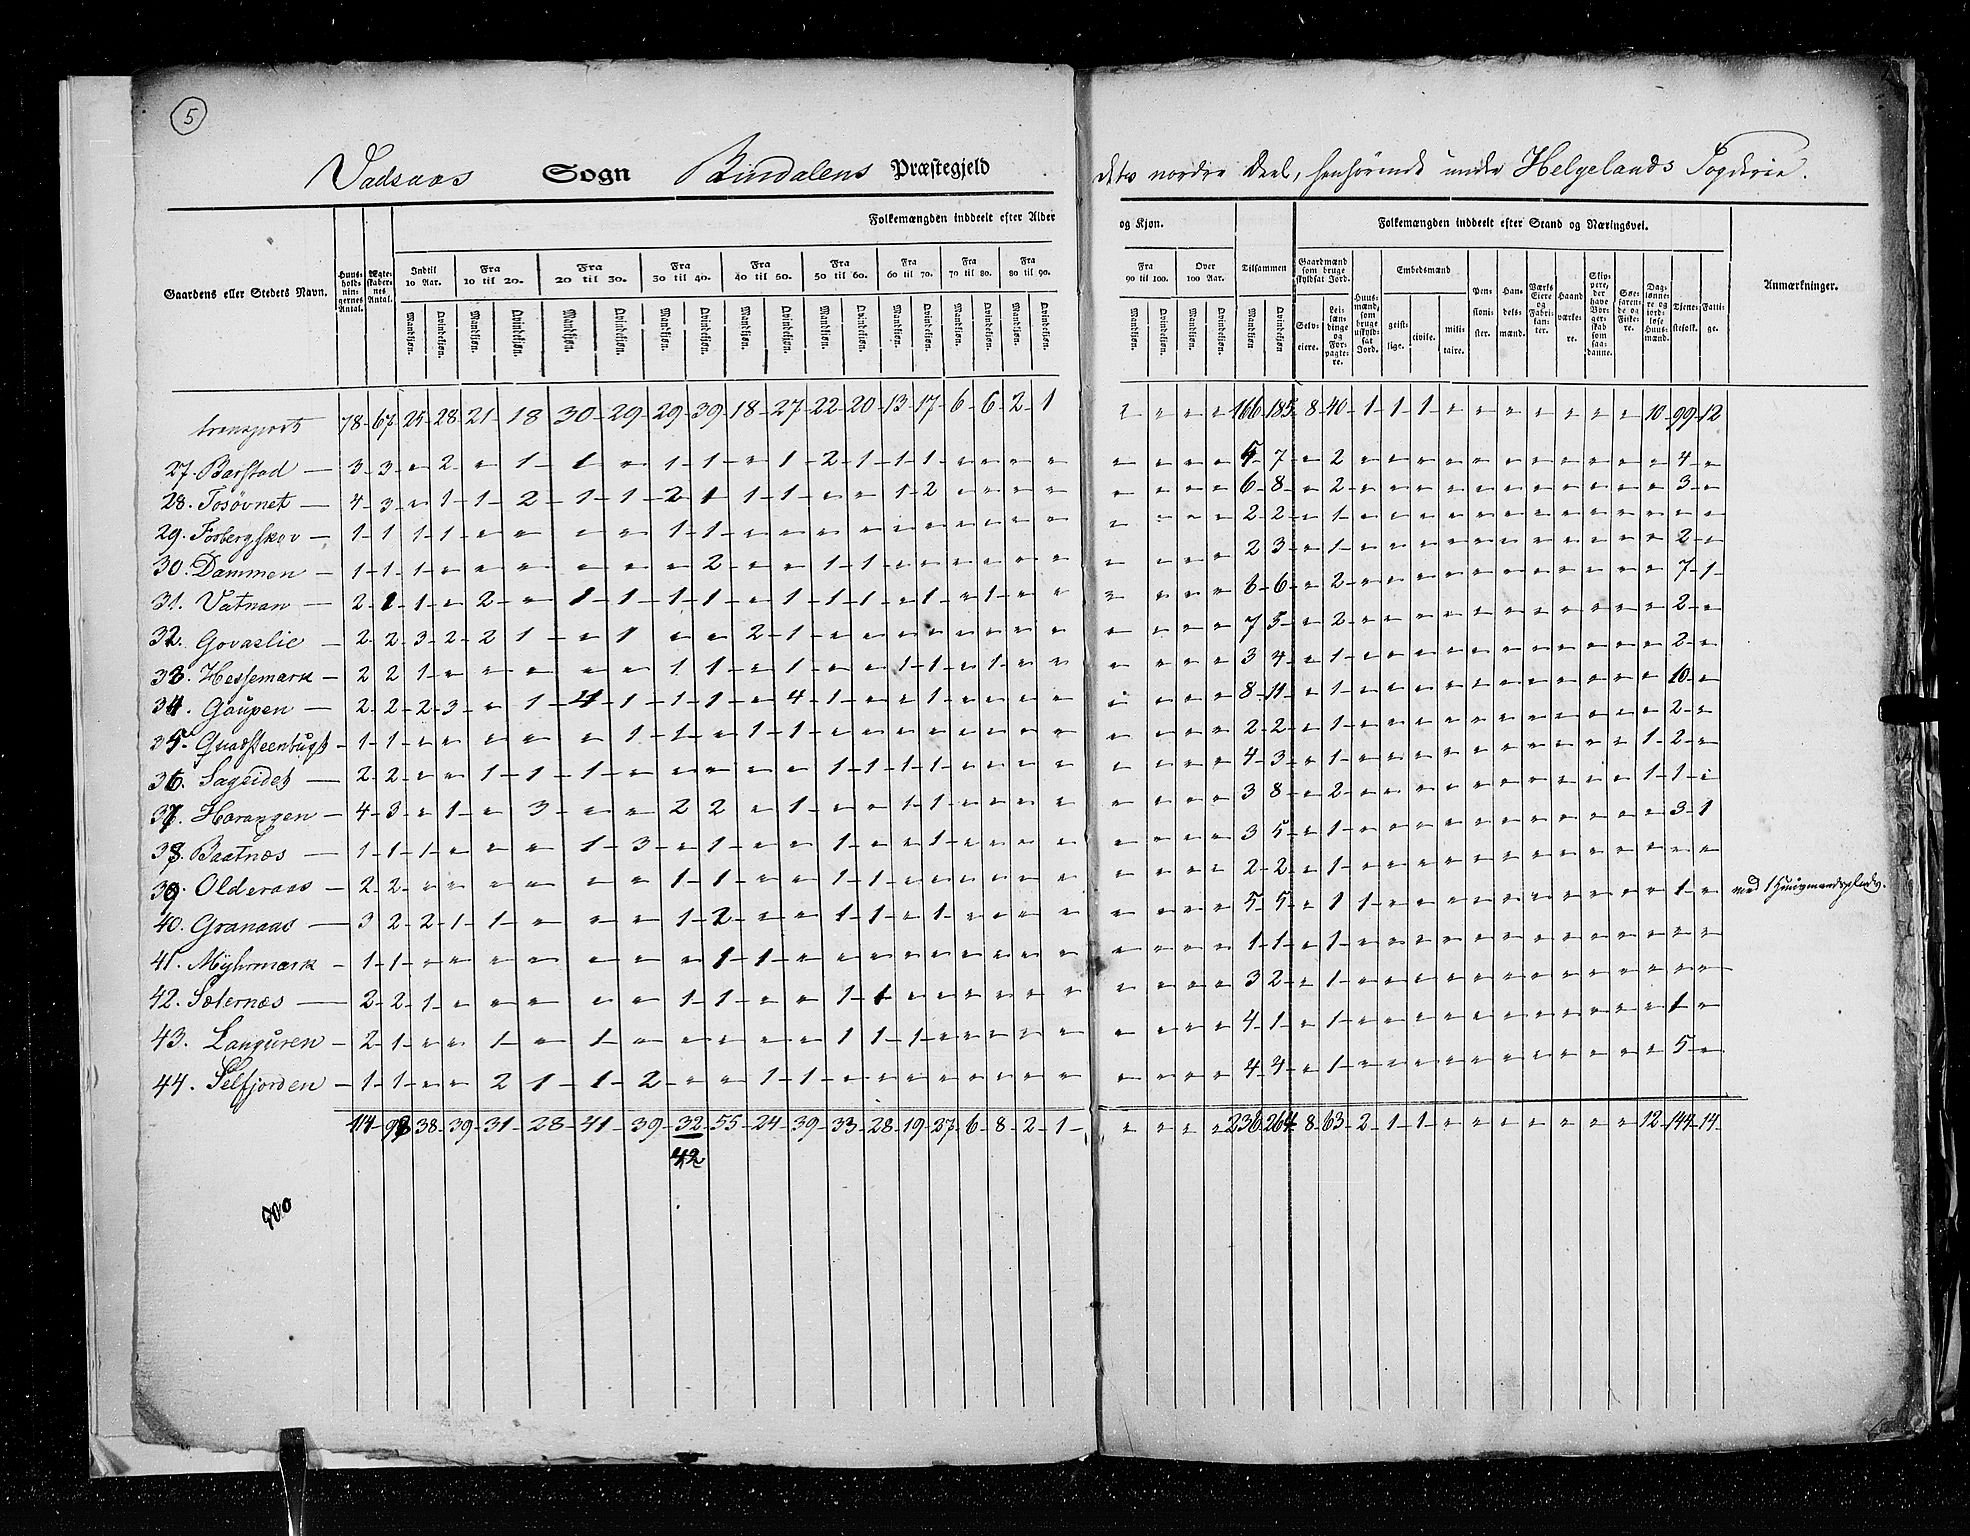 5
Vadsaas Sogn Bindalens Præstegjeld dets nordre Deel, henhörende under Helgelands Fogderie.
Folkemængden inddeelt efter Alder og Kjøn. Folkemængden inddeelt efter Stand og Næringsvei.
Gaardens eller Stedets Navn. Huus-holdnin-gernes Antal. Ægte-skaber-nes Antal. Indtil 10 Aar. Fra 10 til 20. Fra 20 til 30. Fra 30 til 40. Fra 40 til 50. Fra 50 til 60. Fra 60 til 70. Fra 70 til 80. Fra 80 til 90. Fra 90 til 100. Over 100 Aar. Tilsammen Gaardmænd som bruge skyldsat Jord. Huus-mænd, som bruge uskyld-sat Jord. Embedsmænd Pen-sioni-ster. Han-dels-mænd. Værks Eiere og Fabri-kan-ter. Haand værke-re. Skip-pere, der have Bor-ger-skab som saa-danne. Søe-faren-de og Fiske-re. Dag-lønne-re og jord-løse Huus-mænd. Tjene-stefolk. Fatti-ge. Anmærkninger.
Mandkjøn. Qvindekjøn. Mandkjøn. Qvindekjøn. Mandkjøn. Qvindekjøn. Mandkjøn. Qvindekjøn. Mandkjøn. Qvindekjøn. Mandkjøn. Qvindekjøn. Mandkjøn. Qvindekjøn. Mandkjøn. Qvindekjøn. Mandkjøn. Qvindekjøn. Mandkjøn. Qvindekjøn. Mandkjøn. Qvindekjøn. Mandkjøn. Qvindekjøn Selv-eiere. Lei-læn-dinge og For-pagte-re. geist-lige. civile. mili-taire.
transport 78 67 25 28 21 18 30 29 29 39 18 27 22 20 13 17 6 6 2 1 " " " " 166 185 8 40 1 1 1 " " " " " " " 10 99 12
27. Barstad 3 3 " 2 " 1 1 " 1 1 " 1 2 1 1 1 " " " " " " " " 5 7 " 2 " " " " " " " " " " " 4 "
28. Tosövnet 4 3 " 1 1 2 1 1 2 1 1 1 " " 1 2 " " " " " " " " 6 8 " 2 " " " " " " " " " " " 3 "
29. Fosbergskov 1 1 1 1 " " " " 1 1 " " " " " " " " " " " " " " 2 2 " 1 " " " " " " " " " " " " "
30. Dammen 1 1 1 " " " " " " 2 " " 1 1 " " " " " " " " " " 2 3 " 1 " " " " " " " " " " " 2 "
31. Vatnan 2 1 1 " 2 " 1 1 1 1 " 1 1 1 " 1 " 1 " " " " " " 6 6 " 2 " " " " " " " " " " " 7 1
32. Govaslie 2 2 3 2 2 1 " 1 " " 2 1 " " " " " " " " " " " " 7 5 " 2 " " " " " " " " " " " 2 "
33. Hessemark 2 2 1 " " " " " 1 1 " 1 " " 1 1 " 1 " " " " " " 3 4 " 1 " " " " " " " " " " " 2 "
34. Gaupen 2 2 2 3 " 1 4 1 1 1 " 4 1 " " 1 " " " " " " " " 8 11 " 1 " " " " " " " " " " " 10 "
35. Quadsteenbugt 1 1 " " " " " 1 1 " 1 1 " " " " " " " " " " " " 2 2 " 1 " " " " " " " " " " " 2 "
36. Sageidet 2 2 " " 1 1 1 " " " " " 1 1 1 1 " " " " " " " " 4 3 " 1 " " " " " " " " " " 1 2 "
37. Horangen 4 3 " 1 " 3 " " 2 2 " 1 " " 1 1 " " " " " " " " 3 8 " 2 " " " " " " " " " " 1 1 "
38. Baatnæs 1 1 1 " " " 1 3 " 1 " " 1 " " 1 " " " " " " " " 3 5 " 1 " " " " " " " " " " " 3 1
39. Olderaas 2 2 " " " " " " 1 1 " " 1 1 " " " " " " " " " " 2 2 " 1 " " " " " " " " " " " " "
40. Granaas 3 2 2 1 1 " " " 1 2 " " 1 1 " 1 " " " " " " " " 5 5 " 1 1 " " " " " " " " " " 1 " med 1 Huusmandsplads.
41. Myhrmark 1 1 " " " " " " " 1 1 " " " " " " " " " " " " " 1 1 " 1 " " " " " " " " " " " " "
42. Sæternæs 2 2 1 " " " " " 1 1 " " 1 1 " " " " " " " " " " 3 2 " 1 " " " " " " " " " " " " "
43. Languren 2 1 " " 1 " 1 " " " " " 1 1 1 " " " " " " " " " 4 1 " 1 " " " " " " " " " " " 1 "
44. Selfjorden 1 1 " " 2 1 1 2 " " 1 1 " " " " " " " " " " " " 4 4 " 1 " " " " " " " " " " " 5 "
114 98 38 39 31 28 41 39 32 55 24 39 33 28 19 27 6 8 2 1 " " " " 236 264 8 63 2 1 1 " " " " " " " 12 144 14
42